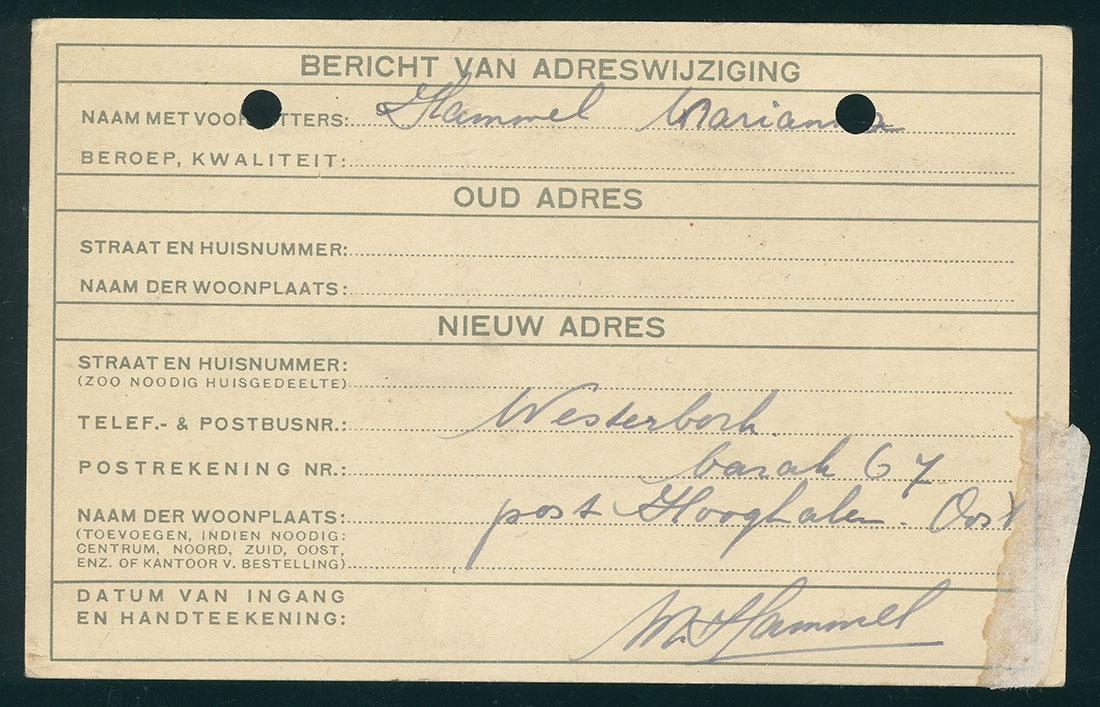 BERICHT VAN ADRESWIJZIGING
NAAM MET VOOR TTERS: Hammel Marianna
BEROEP, KWALITEIT:
OUD ADRES
STRAAT EN HUISNUMMER:
NAAM DER WOONPLAATS:
NIEUW ADRES
STRAAT EN HUISNUMMER:
(ZOO NOODIG HUISGEDEELTE)
TELEF.- & POSTBUSNR.: Westerbork.
POSTREKENING NR.: barak 67
NAAM DER WOONPLAATS: post Hooghalen. Oost
(TOEVOEGEN, INDIEN NOODIG:
CENTRUM, NOORD, ZUID, OOST,
ENZ. OF KANTOOR V. BESTELLING)
DATUM VAN INGANG
EN HANDTEEKENING: M. Hammel